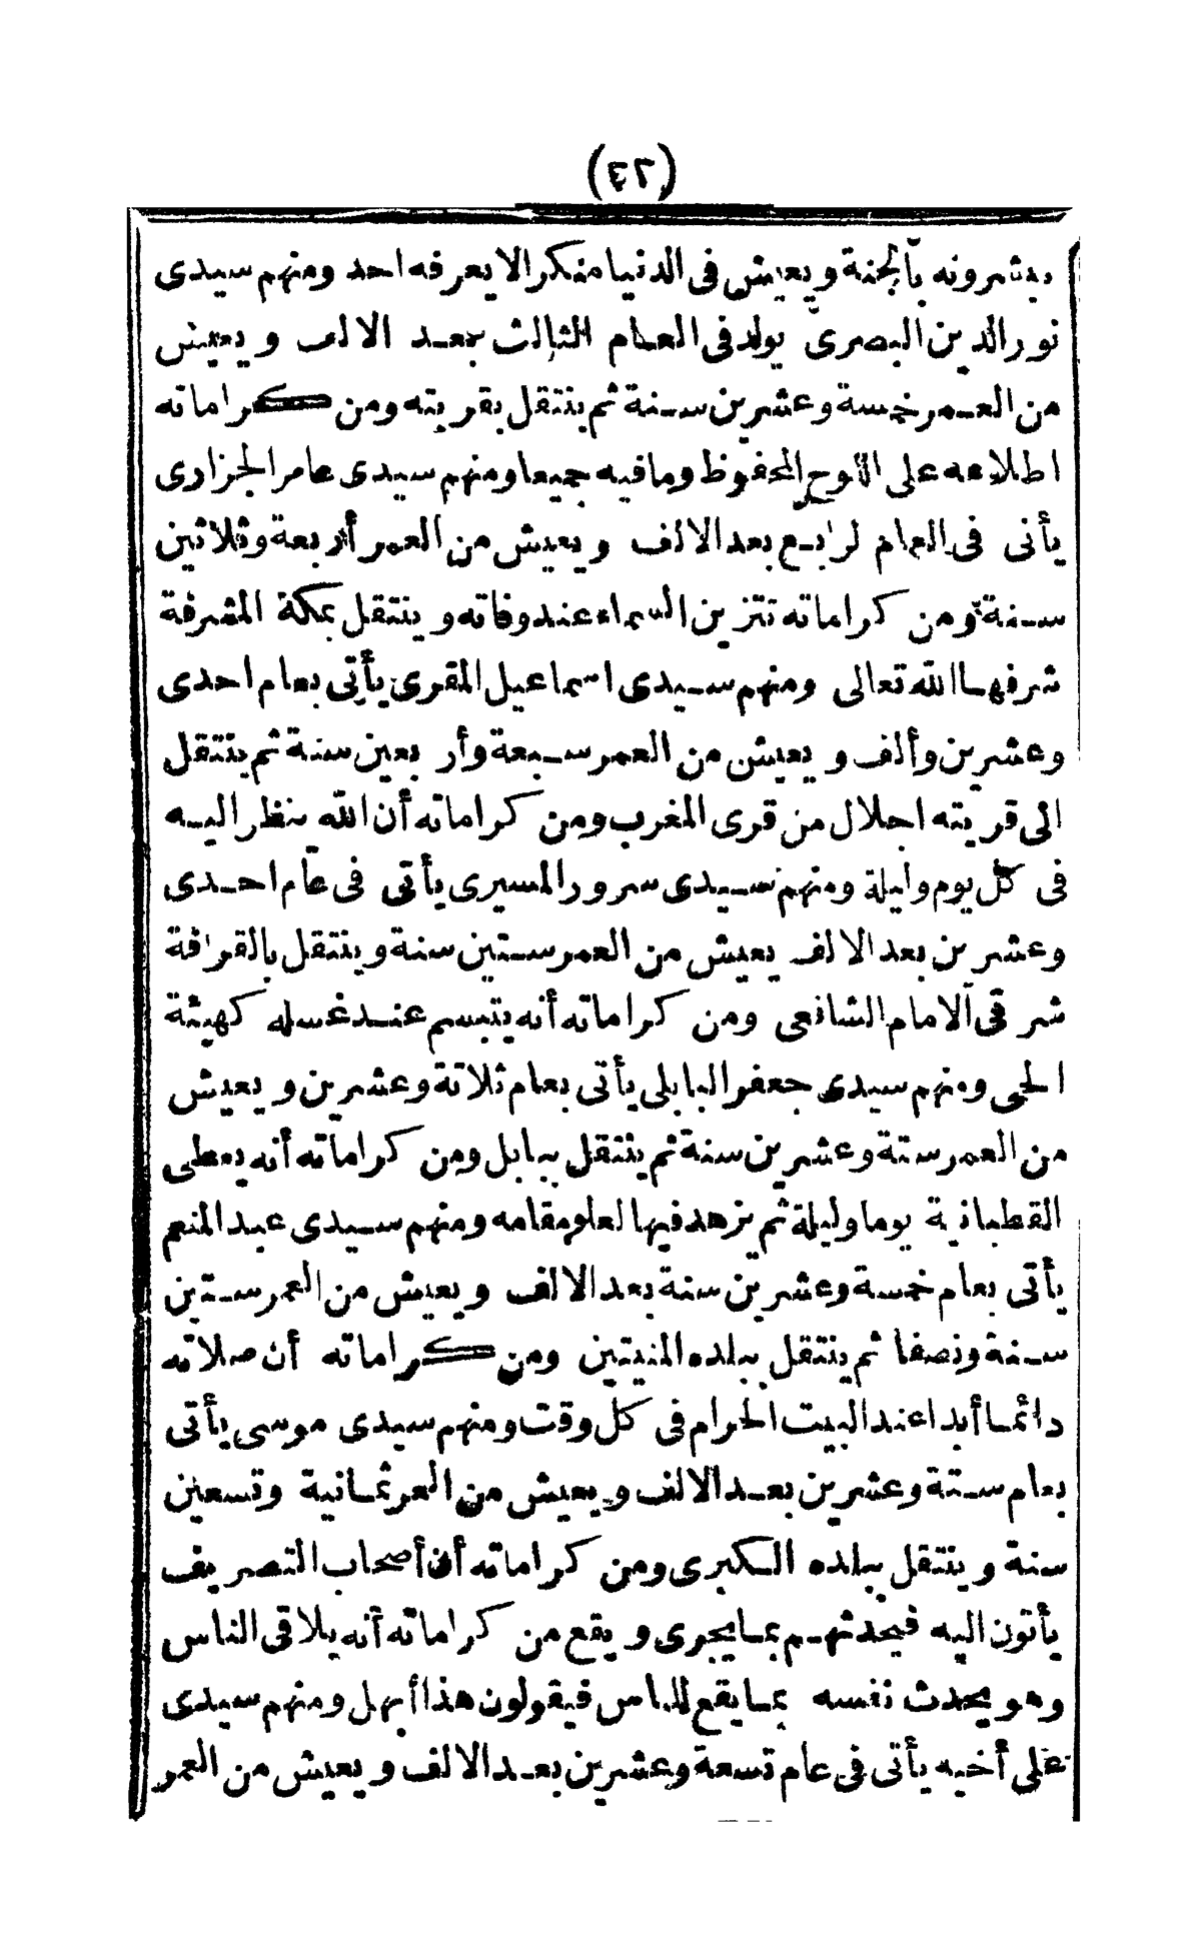 (٤٢)
يبشرونه بالجنة ويعيش فى الدنيا منكرا لا يعرفه احد ومنهم سيدى
نور الدين البصرى يولد فى العام الثالث بعد الالف ويعيش
من العمر خمسة وعشرين سنة ثم ينتقل بقريته ومن كراماته
اطلاعه على اللوح المحفوظ وما فيه جميعا ومنهم سيدى عامر الجزارى
يأتى فى العام لرابع بعد الالف ويعيش من العمر أربعة وثلاثين
سنة ومن كراماته تتزين السماء عند وفاته وينتقل بمكة المشرفة
شرفها الله تعالى ومنهم سيدى اسماعيل المقرى يأتى بعام احدى
وعشرين وألف ويعيش من العمر سبعة وأربعين سنة ثم ينتقل
الى قريته اجلال من قرى المغرب ومن كراماته أن الله ينظر اليه
فى كل يوم وليلة ومنهم سيدى سرور المسيرى يأتى فى عام احدى
وعشرين بعد الالف يعيش من العمر ستين سنة وينتقل بالقرافة
شرقى الامام الشافعى ومن كراماته أنه يتبسم عند غسله كهيئة
الحى ومنهم سيدى جعفر البابلى يأتى بعام ثلاثة وعشرين ويعيش
من العمر ستة وعشرين سنة ثم ينتقل ببابل ومن كراماته أنه يعطى
القطبانية يوما وليلة ثم يزهد فيها لعلو مقامه ومنهم سيدى عبد المنعم
يأتى بعام خمسة وعشرين سنة بعد الالف ويعيش من العمر ستين
سنة ونصفا ثم ينتقل ببلده المنيتين ومن كراماته أن صلاته
دائما أبدا عند البيت الحرام فى كل وقت ومنهم سيدى موسى يأتى
بعام ستة وعشرين بعد الالف ويعيش من العمر ثمانية وتسعين
سنة وينتقل ببلده الكبرى ومن كراماته أن أصحاب التصريف
يأتون اليه فيحدثهم بما يجرى ويقع من كراماته أنه يلاقى الناس
وهو يحدث نفسه بما يقع للناس فيقولون هذا أبهل ومنهم سيدى
على أخيه يأتى فى عام تسعة وعشرين بعد الالف ويعيش من العمر